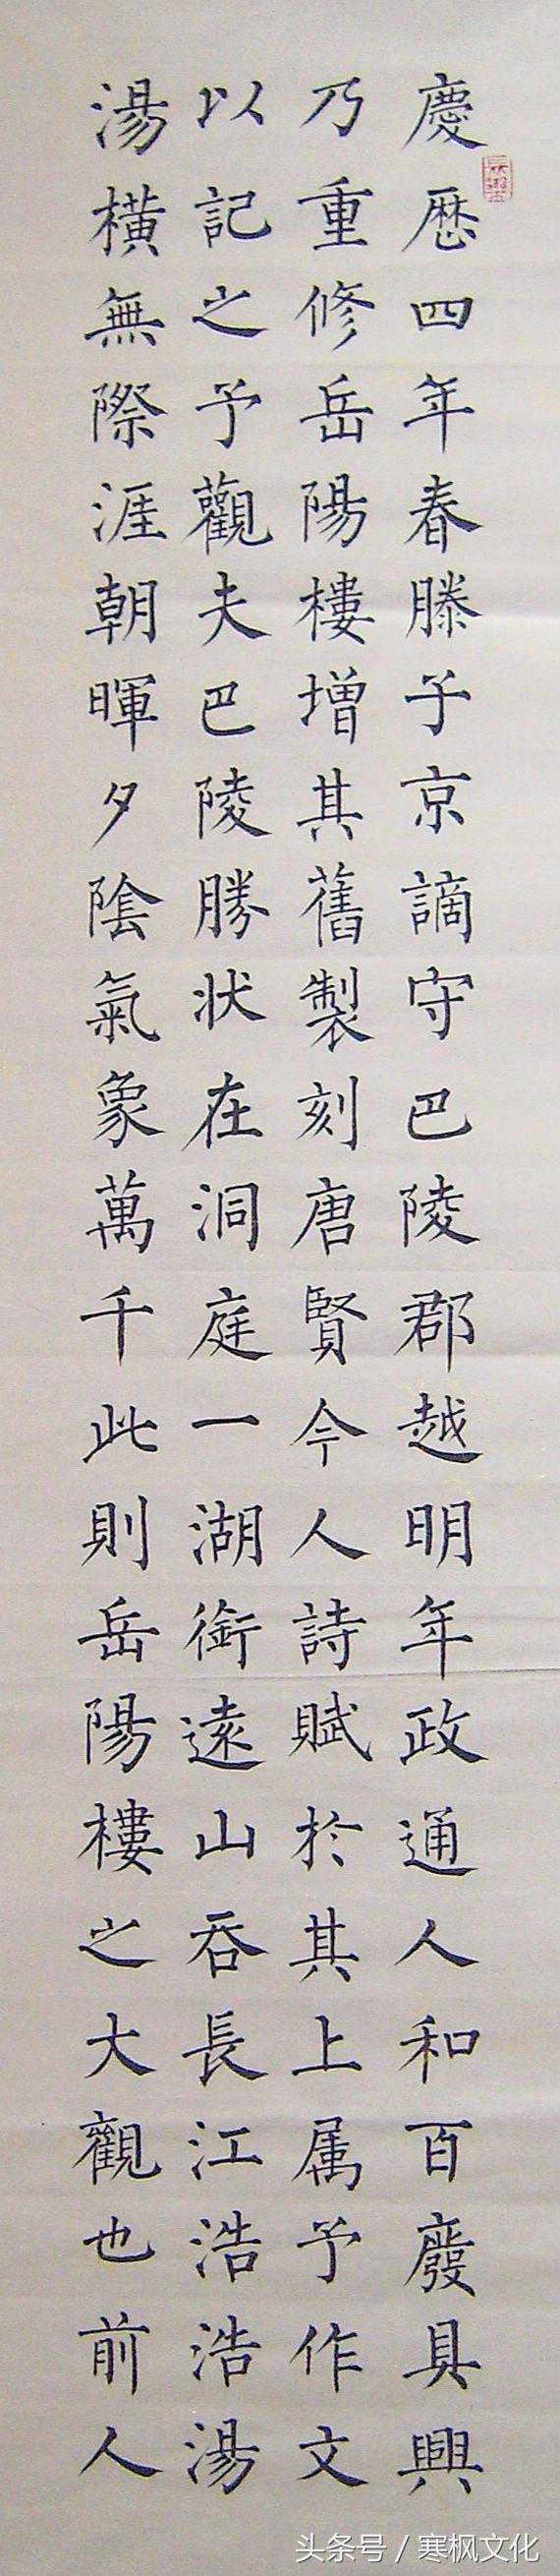 慶歷四年春滕子京謫守巴陵郡越明年政通人和百廢具興
乃重修岳陽樓增其舊製刻唐賢今人詩賦於其上属予作文
以記之予觀夫巴陵勝状在洞庭一湖銜遠山吞長江浩浩湯
湯橫無際涯朝暉夕陰氣象萬千此則岳陽樓之大觀也前人
头条号 / 寒枫文化